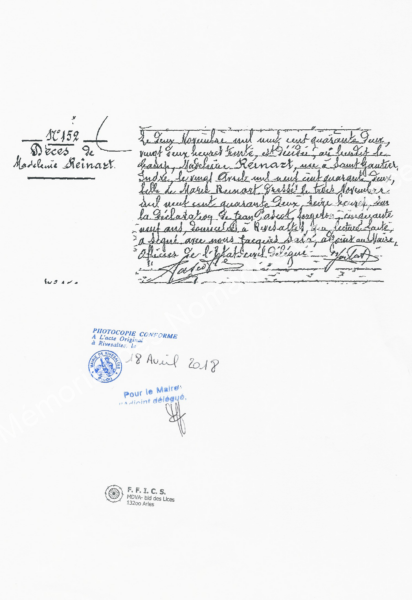 N° 152
Décès de
Madeleine Reinart.
Le deux Novembre mil neuf cent quarante deux,
vingt deux heures trente, est décédée, au lieudit le
Camp, Madeleine Reinart, née à Saint Gautier
Indre, le vingt Avril mil neuf cent quarante deux,
fille de Marie Reinart. Dressé le trois Novembre
mil neuf cent quarante deux, seize heures, sur
la déclaration de Jean cinquante
neuf ans, domicilié à Rivesaltes, qui, lecture faite,
a signé avec nous Jacques adjoint au Maire,
Officier de l'Etat Civil délégué.
PHOTOCOPIE CONFORME
A L'acte Original
à Rivesaltes, le
18 Avril 2018
Pour le Maire
adjoint délégué,
F. F. I. C. S.
MDVA- Bld des Lices
13200 Arles